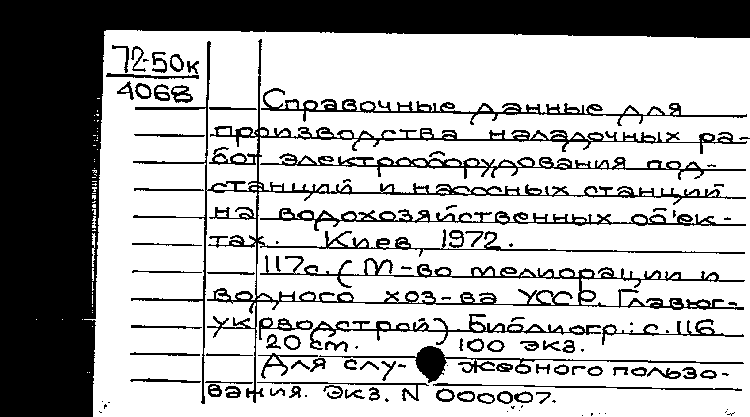 72-50к
4068
Справочные данные для
производства наладочных ра-
бот электрооборудования под-
станций и насосных станций
на водохозяйственных об'ек-
тах. Киев, 1972.
117с. (М-во мелиорации и
водного хоз-ва УССР. Главюг-
укрводстрой) Библиогр.: с. 116
20 см. 100 экз.
Для слу- жебного пользо-
вания. Экз. N 000007.